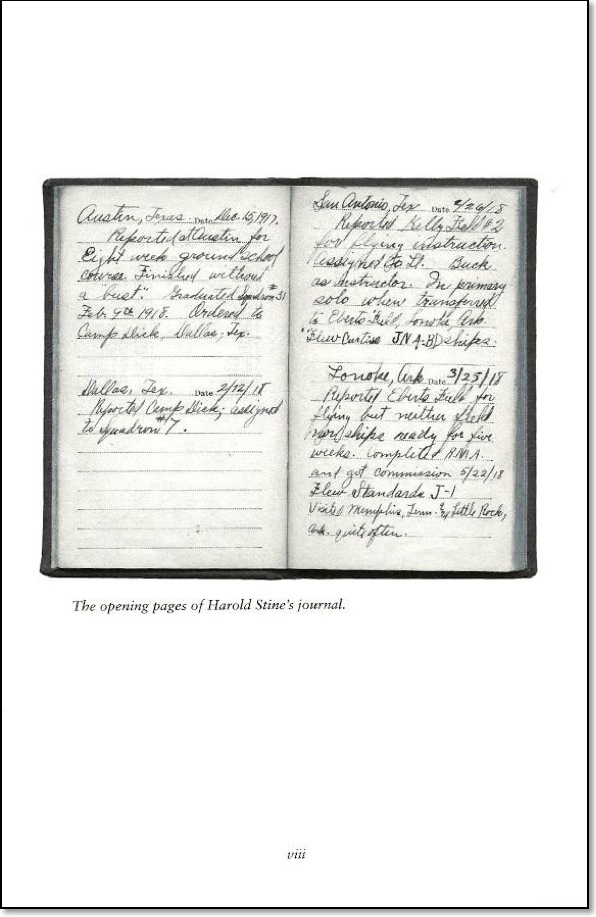 Austin, Texas. Date Dec. 15, 1917.
Reported at Austin for
Eight week ground school
course. Finished without
a "bust". Graduated Squadron #31
Feb. 9th 1918. Ordered to
Camp Dick, Dallas, Tex.
Dallas, Tex. Date 2/12/18
Reported Camp Dick; assigned
to squadron #7.
San Antonio, Tex Date 2/26/18
Reported Kelly Field #2
for flying instruction.
Assigned to Lt. Buck
as instructor. In primary
solo when transferred
to Eberts Field Lonoke Ark.
Flew Curtiss JN4-D ships.
Lonoke, Ark Date 3/25/18
Reported Eberts Field for
flying but neither field
nor ships ready for five
weeks. Completed R.M.A.
and got commission 5/22/18
Flew Standards J-1
Visited Memphis, Tenn. & Little Rock,
Ark. quite often.
The opening pages of Harold Stine's journal.
viii